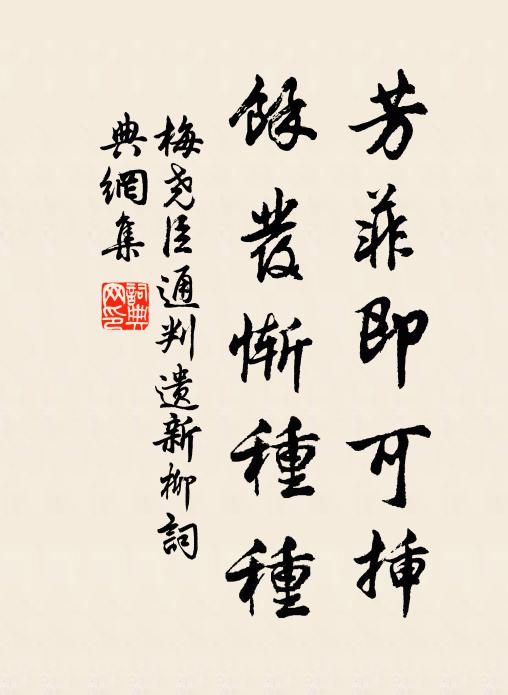 芳菲即可插
餘發慚種種
梅堯臣通判遺新柳詞
典網集
詞典
网印